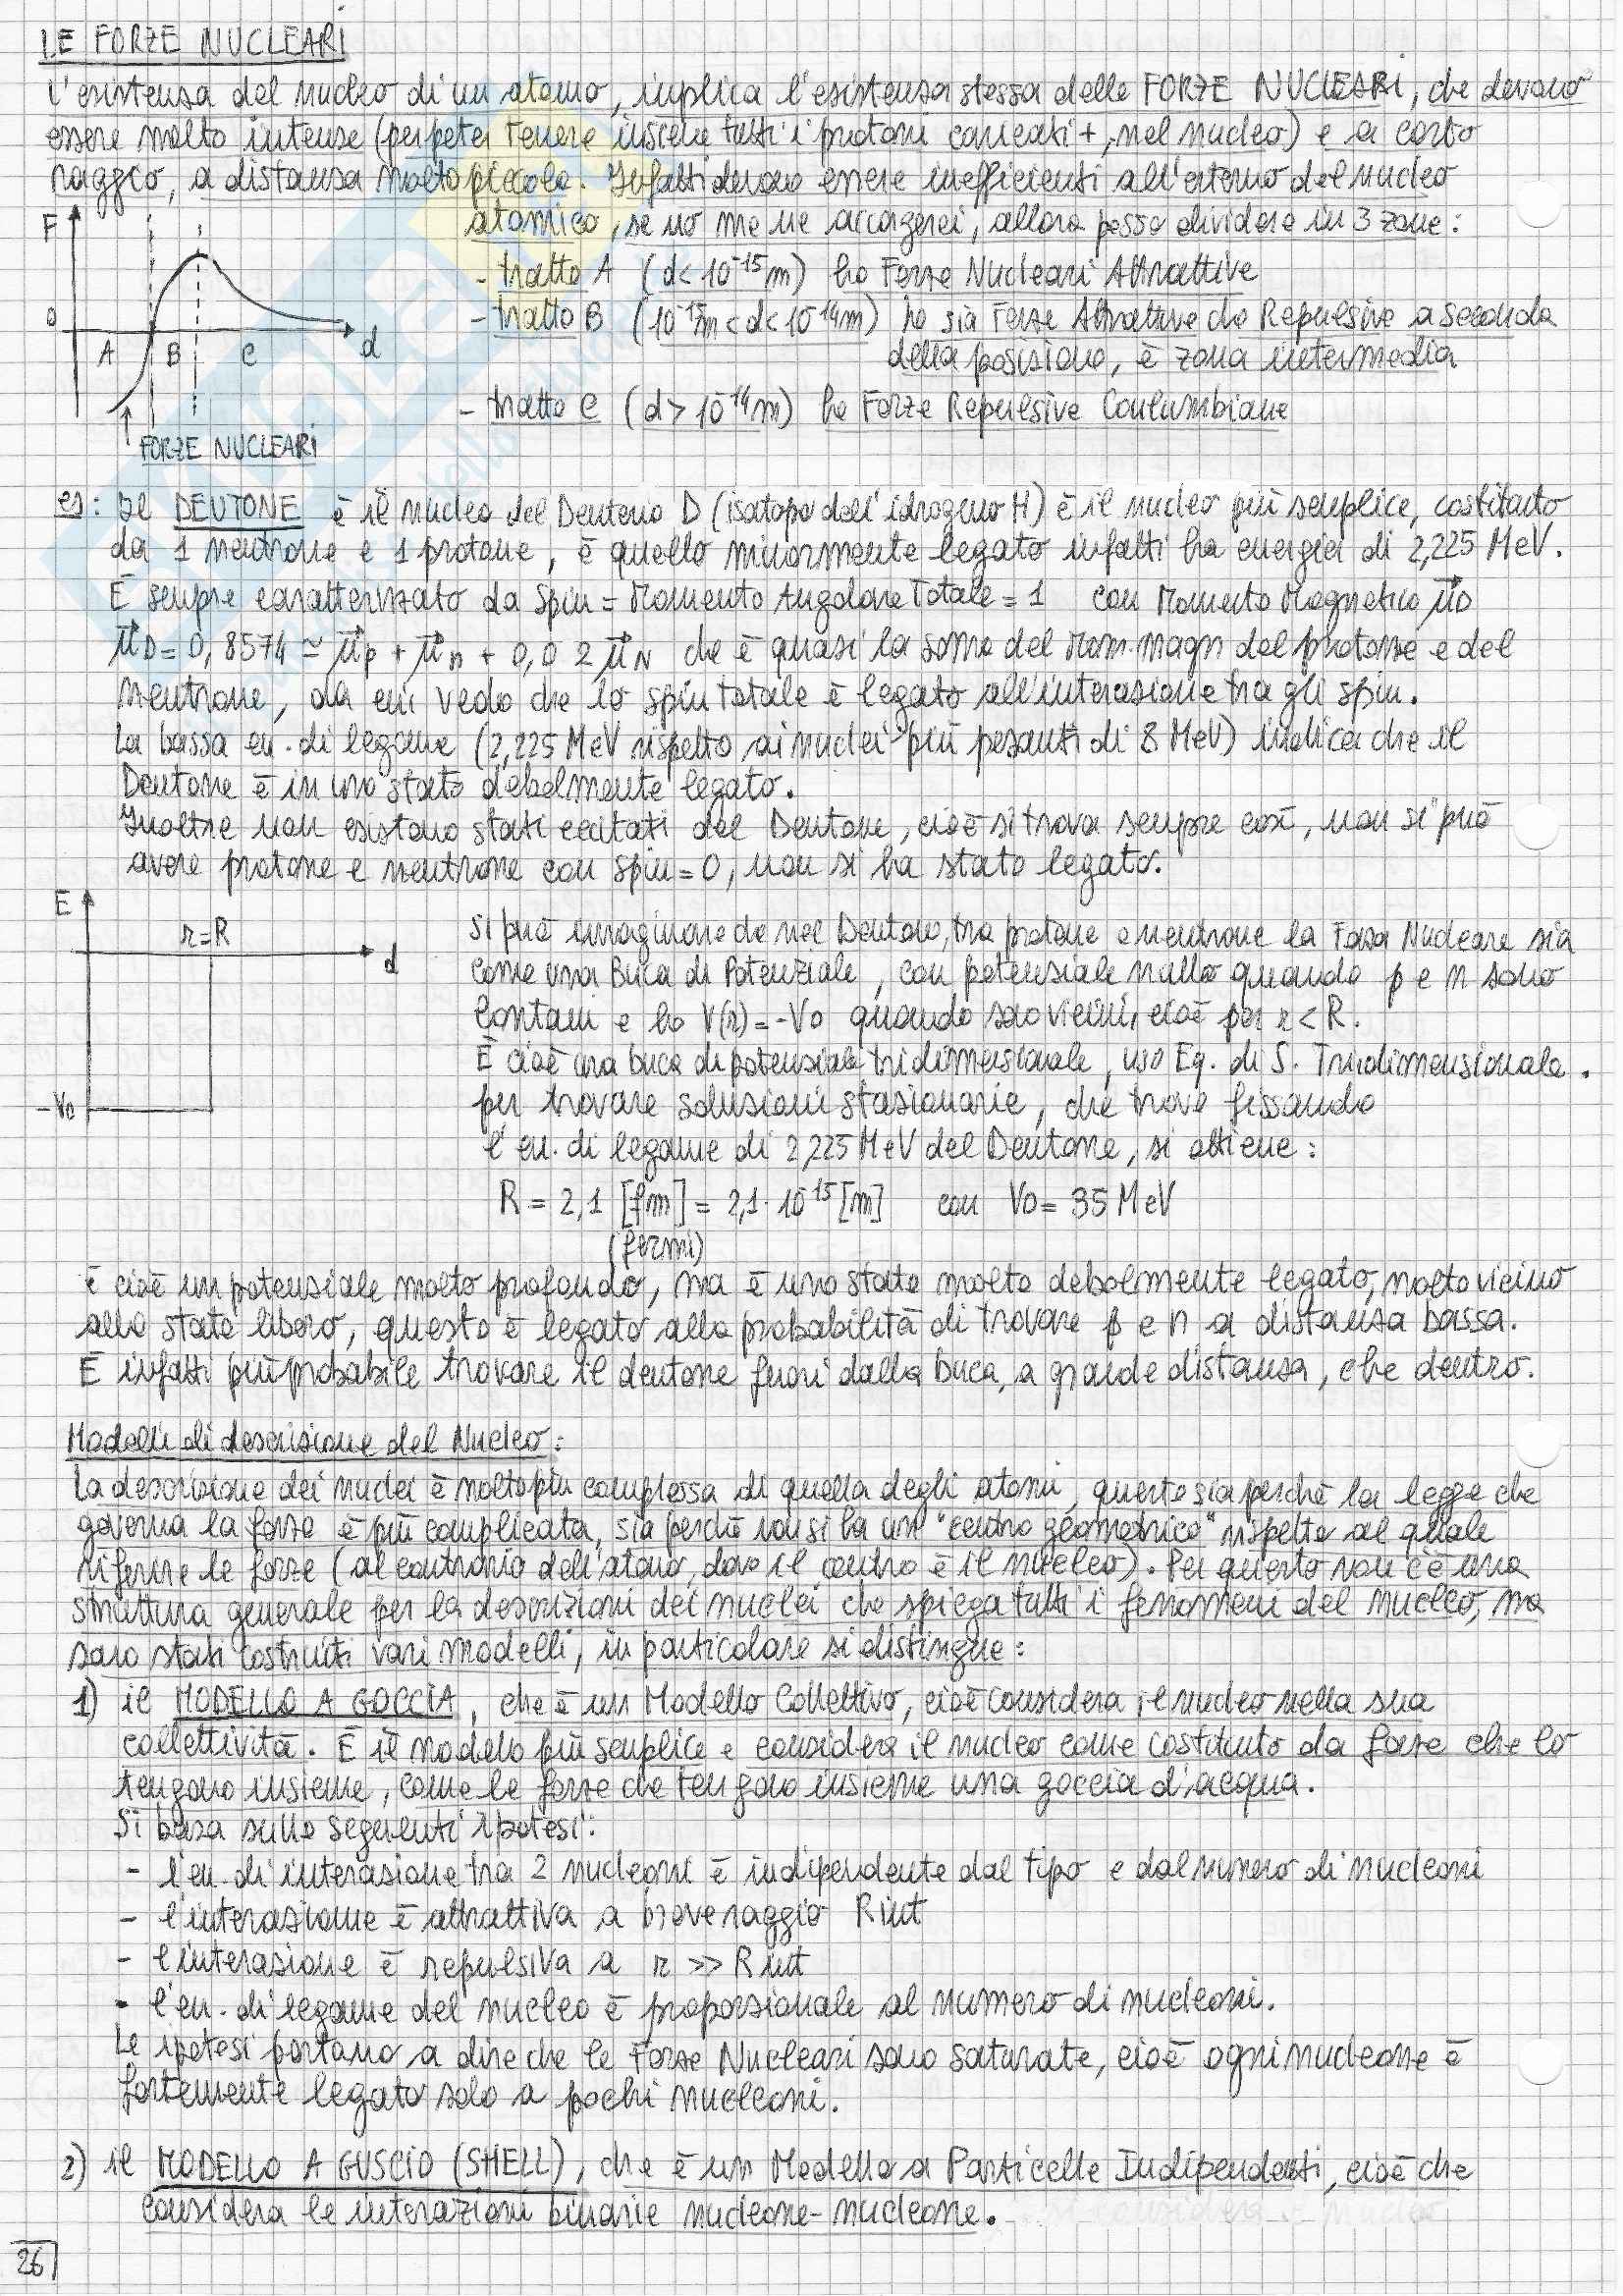 LE FORZE NUCLEARI
L'esistenza del nucleo di un atomo, implica l'esistenza stessa delle FORZE NUCLEARI, che devono
essere molto intense (per poter tenere insieme tutti i protoni caricati +, nel nucleo) e a corto
raggio, a distanza molto piccola. Infatti devono essere inefficienti all'esterno del nucleo
atomico, se no me ne accorgerei, allora posso dividere in 3 zone:
- tratto A (d < 10⁻¹⁵m) ho Forze Nucleari Attrattive
- tratto B (10⁻¹⁵m < d < 10⁻¹⁴m) ho sia Forze Attrattive che Repulsive a seconda
della posizione, è zona intermedia
- tratto C (d > 10⁻¹⁴m) ho Forze Repulsive Coulumbiane
F
0
A B C d
FORZE NUCLEARI
es: Il DEUTONE è il nucleo del Deuterio D (isotopo dell'idrogeno H) è il nucleo più semplice, costituito
da 1 neutrone e 1 protone, è quello minormente legato infatti ha energia di 2,225 MeV.
È sempre caratterizzato da Spin = Momento Angolare Totale = 1 con Momento Magnetico μ⃗D
μ⃗D = 0,8574 ≃ μ⃗p + μ⃗n + 0,02 μ⃗N che è quasi la somma del mom. magn del protone e del
neutrone, da cui vedo che lo spin totale è legato all'interazione tra gli spin.
La bassa en. di legame (2,225 MeV rispetto ai nuclei più pesanti di 8 MeV) indica che il
Deutone è in uno stato debolmente legato.
Inoltre non esistono stati eccitati del Deutone, cioè si trova sempre così, non si può
avere protone e neutrone con spin = 0, non si ha stato legato.
E
r = R
d
-V₀
Si può immaginare che nel Deutone, tra protone e neutrone la Forza Nucleare sia
come una Buca di Potenziale, con potenziale nullo quando p e n sono
lontani e ho V(r) = -V₀ quando sono vicini, cioè per r < R.
È cioè una buca di potenziale tridimensionale, uso Eq. di S. Tridimensionale.
per trovare soluzioni stazionarie, che trovo fissando
l'en. di legame di 2,225 MeV del Deutone, si ottiene:
R = 2,1 [fm] = 2,1 · 10⁻¹⁵ [m] con V₀ = 35 MeV
(fermi)
è cioè un potenziale molto profondo, ma è uno stato molto debolmente legato, molto vicino
allo stato libero, questo è legato alla probabilità di trovare p e n a distanza bassa.
È infatti più probabile trovare il deutone fuori dalla buca, a grande distanza, che dentro.
Modelli di descrizione del Nucleo:
La descrizione dei nuclei è molto più complessa di quella degli atomi, questo sia perchè la legge che
governa la forza è più complicata, sia perchè non si ha un "centro geometrico" rispetto al quale
riferire le forze (al contrario dell'atomo, dove il centro è il nucleo). Per questo non c'è una
struttura generale per la descrizioni dei nuclei che spiega tutti i fenomeni del nucleo, ma
sono stati costruiti vari modelli, in particolare si distingue:
1) il MODELLO A GOCCIA, che è un Modello Collettivo, cioè considera il nucleo nella sua
collettività. È il modello più semplice e considera il nucleo come costituito da forze che lo
tengono insieme, come le forze che tengono insieme una goccia d'acqua.
Si basa sulle seguenti ipotesi:
- l'en. di interazione tra 2 nucleoni è indipendente dal tipo e dal numero di nucleoni
- l'interazione è attrattiva a breve raggio Rint
- l'interazione è repulsiva a r >> Rint
- l'en. di legame del nucleo è proporzionale al numero di nucleoni.
Le ipotesi portano a dire che le Forze Nucleari sono saturate, cioè ogni nucleone è
fortemente legato solo a pochi nucleoni.
2) il MODELLO A GUSCIO (SHELL), che è un Modello a Particelle Indipendenti, cioè che
considera le interazioni binarie nucleone-nucleone.
26